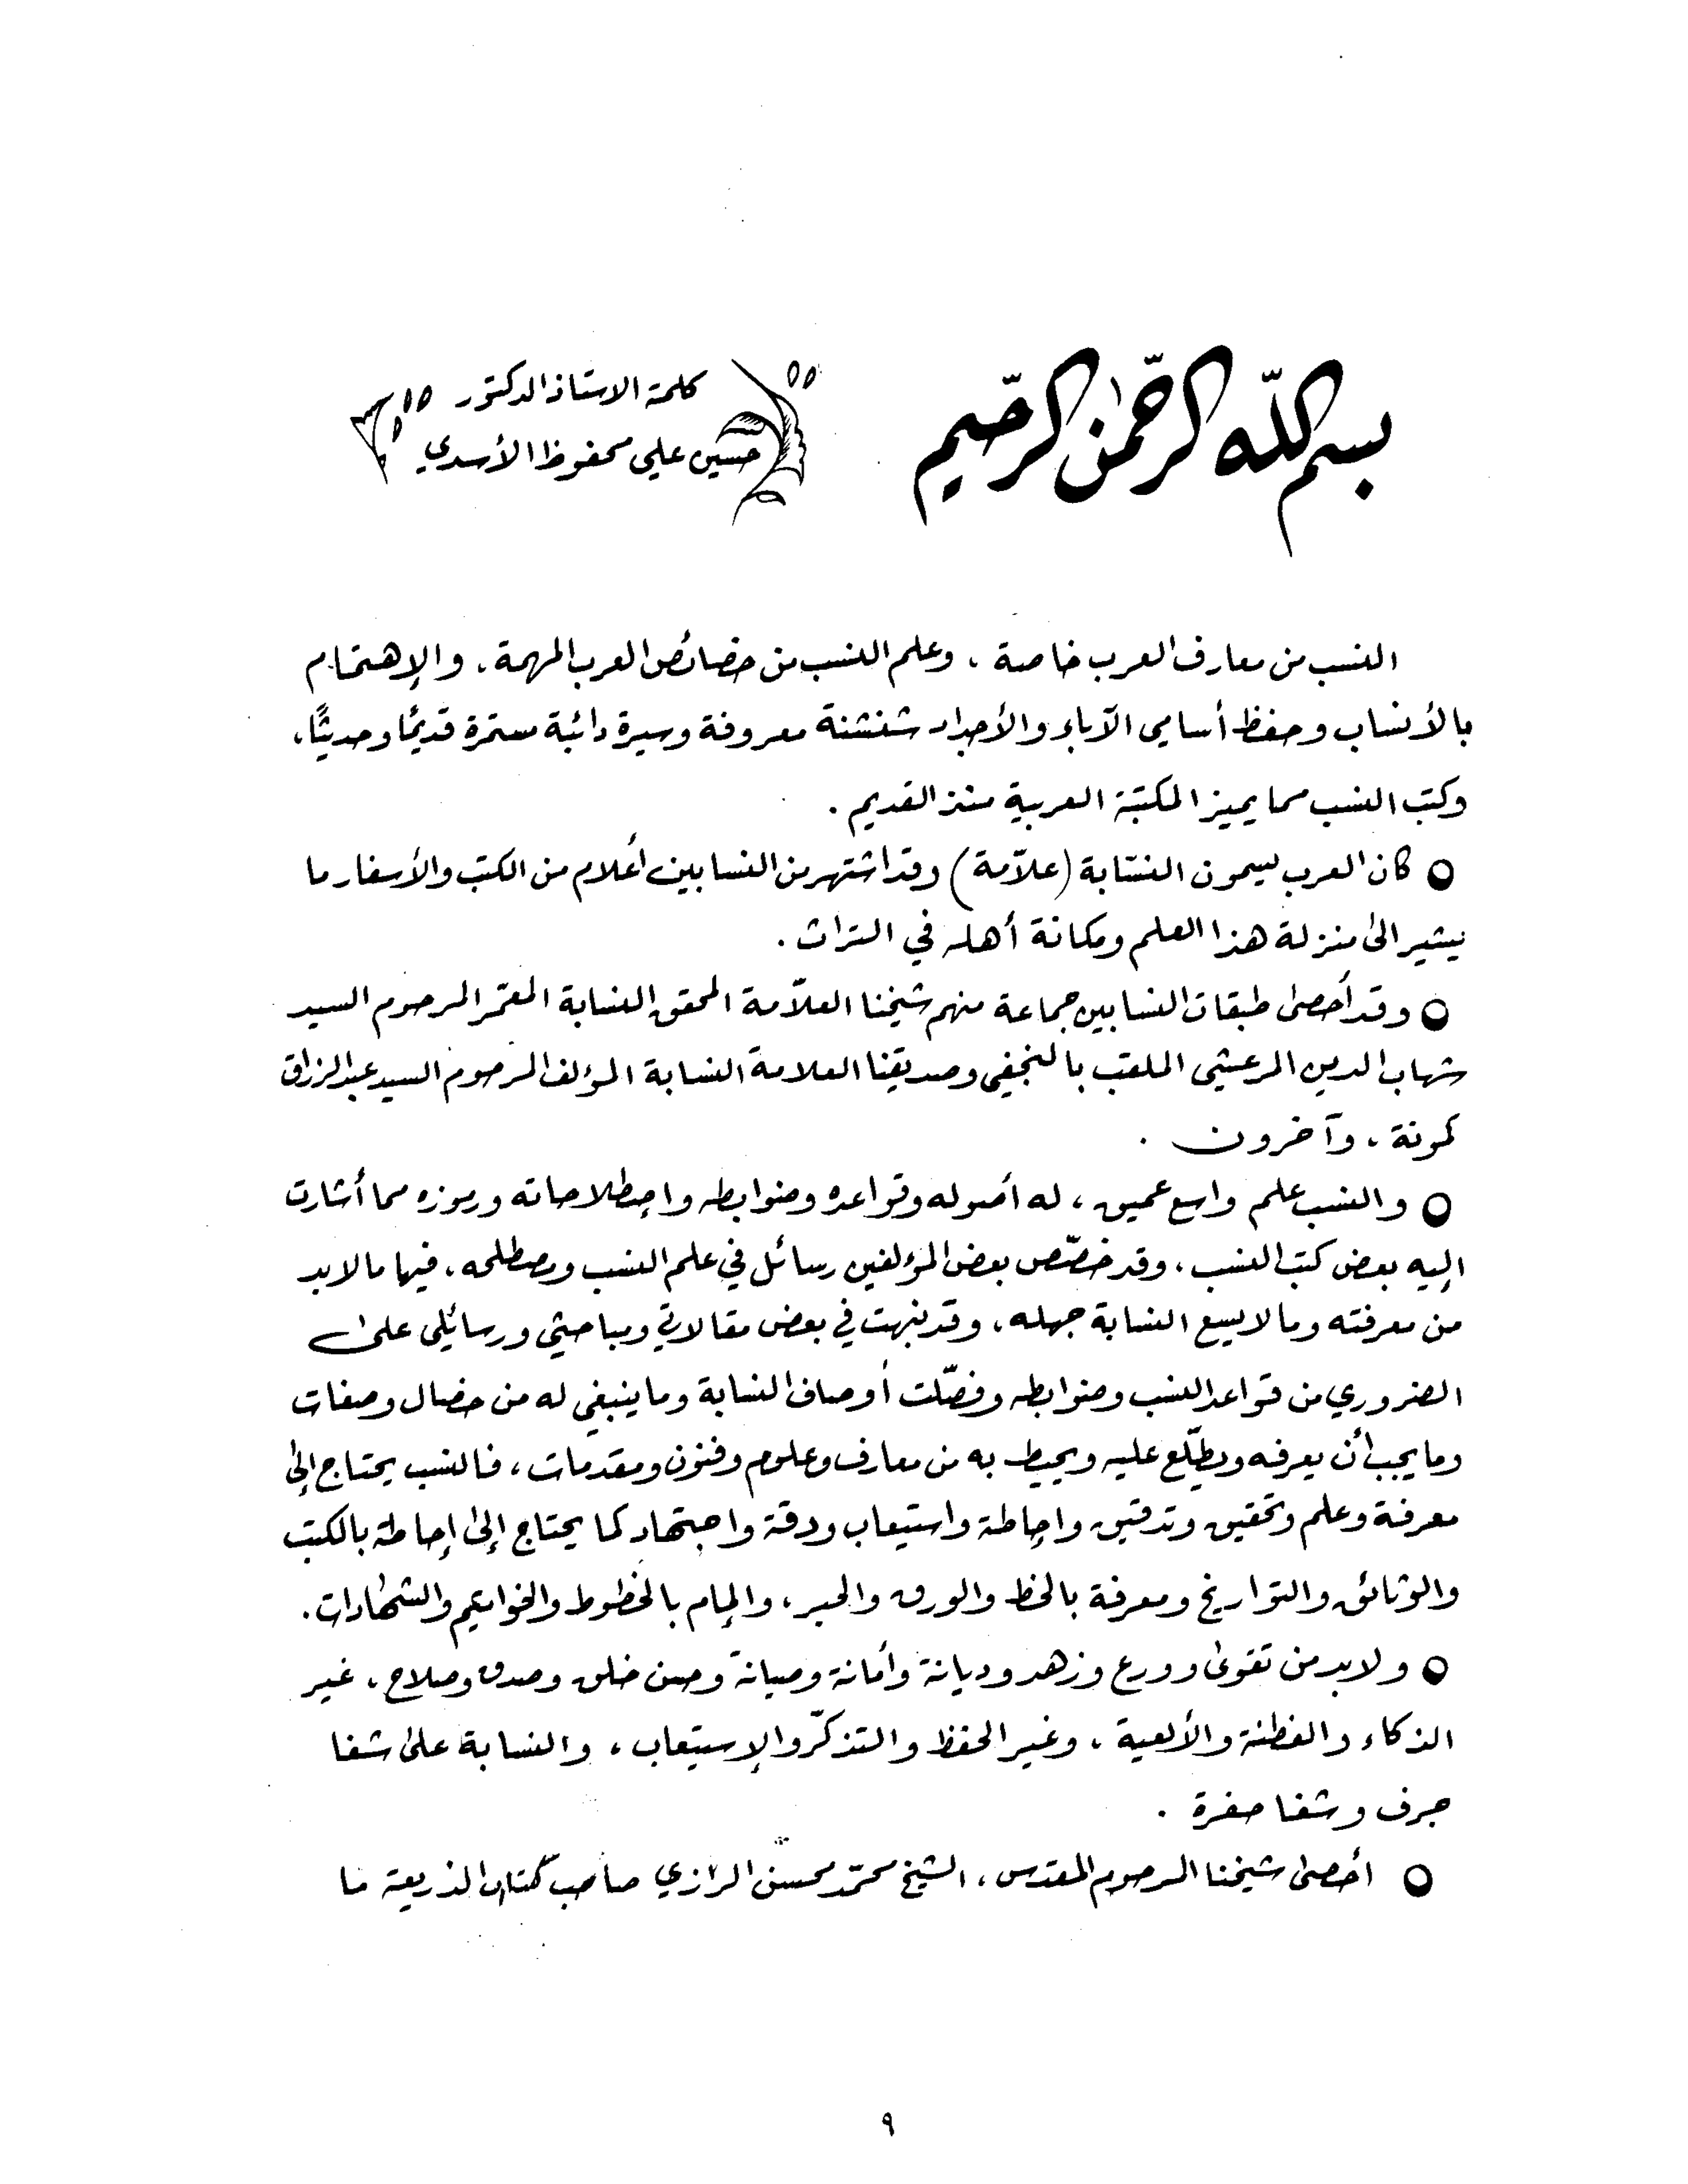 بسم الله الرحمٰن الرحيم
كلمة الاستاذ الدكتور
حسين علي محفوظ الأسدي
النسب من معارف العرب خاصة ، وعلم النسب من خصائص العرب المهمة ، والإهتمام
بالأنساب وحفظ أسامي الآباء والأجداد شنشنة معروفة وسيرة دائبة مستمرة قديمًا وحديثًا ،
وكتب النسب مما يميز المكتبة العربية منذ القديم .
○ كان العرب يسمون النسّابة (علاّمة) وقد اشتهر من النسابين أعلام من الكتب والأسفار ما
يشير الى منزلة هذا العلم ومكانة أهله في التراث .
○ وقد أحصى طبقات النسابين جماعة منهم شيخنا العلاّمة المحقق النسابة المعمّر المرحوم السيد
شهاب الدين المرعشي الملقب بالنجفي وصديقنا العلامة النسابة المؤلف المرحوم السيد عبد الرزاق
كمونة ، وآخرون .
○ والنسب علم واسع عميق ، له أصوله وقواعده وضوابطه واصطلاحاته ورموزه مما أشارت
إليه بعض كتب النسب ، وقد خصّص بعض المؤلفين رسائل في علم النسب ومصطلحه ، فيها ما لابد
من معرفته وما لا يسع النسابة جهله ، وقد نبهت في بعض مقالاتي ومباحثي ورسائلي على
الضروري من قواعد النسب وضوابطه وفصّلت أوصاف النسابة وما ينبغي له من خصال وصفات
وما يجب أن يعرفه ويطّلع عليه ويحيط به من معارف وعلوم وفنون ومقدمات ، فالنسب يحتاج إلى
معرفة وعلم وتحقيق وتدقيق وإحاطة واستيعاب ودقة واجتهاد كما يحتاج إلى إحاطة بالكتب
والوثائق والتواريخ ومعرفة بالخط والورق والحبر ، وإلمام بالخطوط والخواتيم والشهادات .
○ ولابد من تقوى وورع وزهد وديانة وأمانة وصيانة وحسن خلق وصدق وصلاح ، غير
الذكاء والفطنة والألمعية ، وغير الحفظ والتذكّر والإستيعاب ، والنسابة على شفا
جرف وشفا حفرة .
○ أحصى شيخنا المرحوم المقدس ، الشيخ محمّد محسن الرازي صاحب كتاب الذريعة ما
٩